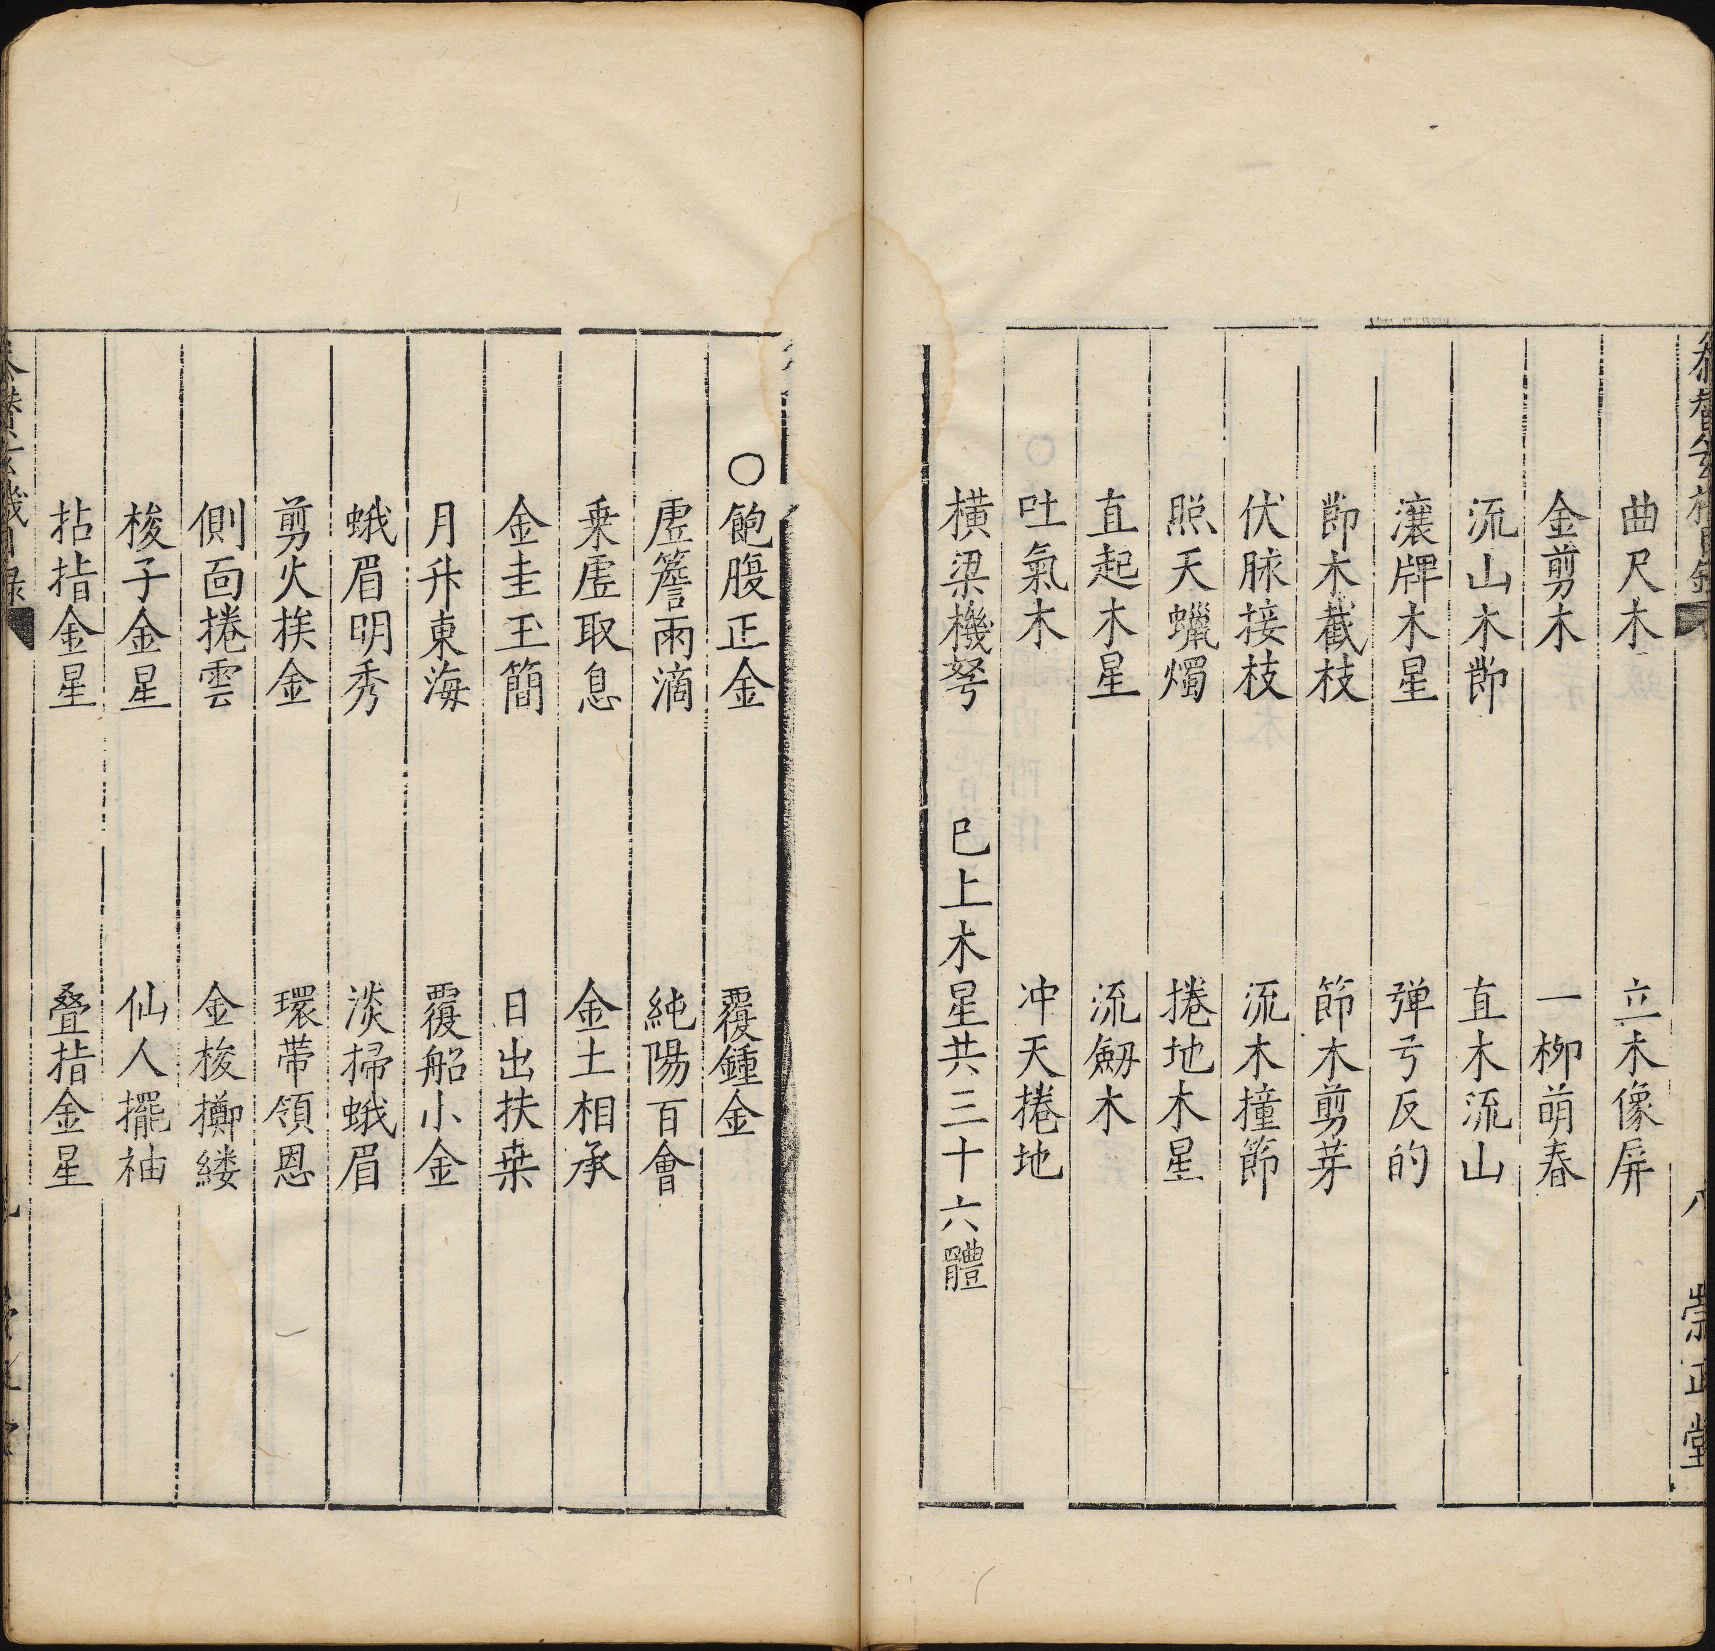 曲尺木　立木像屏
金剪木　一柳萌春
流山木節　直木流山
瀼牌木星　弾弓反的
節木截枝　節木剪芽
伏脉接枝　流木撞節
照天蠟燭　捲地木星
直起木星　流劔木
吐氣木　冲天捲地
横梁機弩　巳上木星共三十六體
八　崇正堂
○飽腹正金　覆鍾金
虚簷雨滴　純陽百會
乗虚取息　金土相承
金圭玉簡　日出扶桒
月升東海　覆船小金
蛾眉明秀　淡掃蛾眉
剪火挨金　環帯領恩
側面捲雲　金梭擲縷
梭子金星　仙人擺袖
拈指金星　叠指金星